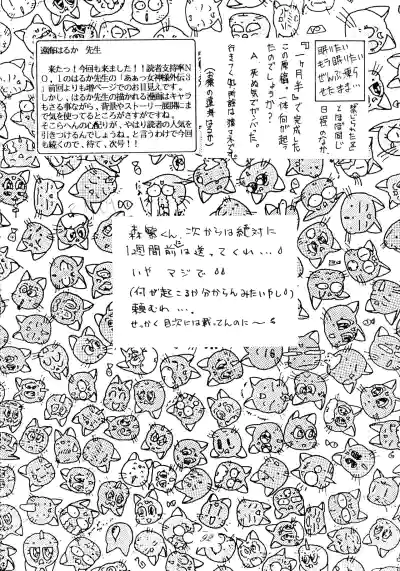 遠海はるか 先生
来たっ！今回も来ました！！読者支持率N
O，1のはるか先生の「ああっ女神様外伝3
」前回よりも増ページでのお目見えです。
しかし、はるか先生の描かれる漫画はキャラ
もさる事ながら、背景やストーリー展開にま
で気を使ってるところがさすがですね。
そこらへんの心配りが、やはり読者の人気を
引きつけるんでしょうね、と言うわけで今回
も続くので、待て、次号！！
眠りたい
もう眠りたい
ぜんぶ凍らせたまま…
「ヶ月半」で完成した
この原稿、一体何が起っ
たのでしょうか？
A、死ぬ気でやりました。
森繁くん、次からは絶対に
1週間前には送ってくれ…。
いや マジで
(何が起こるや分からんみたいやし)
頼むわ…。
せっかく目次には載ってんのに〜